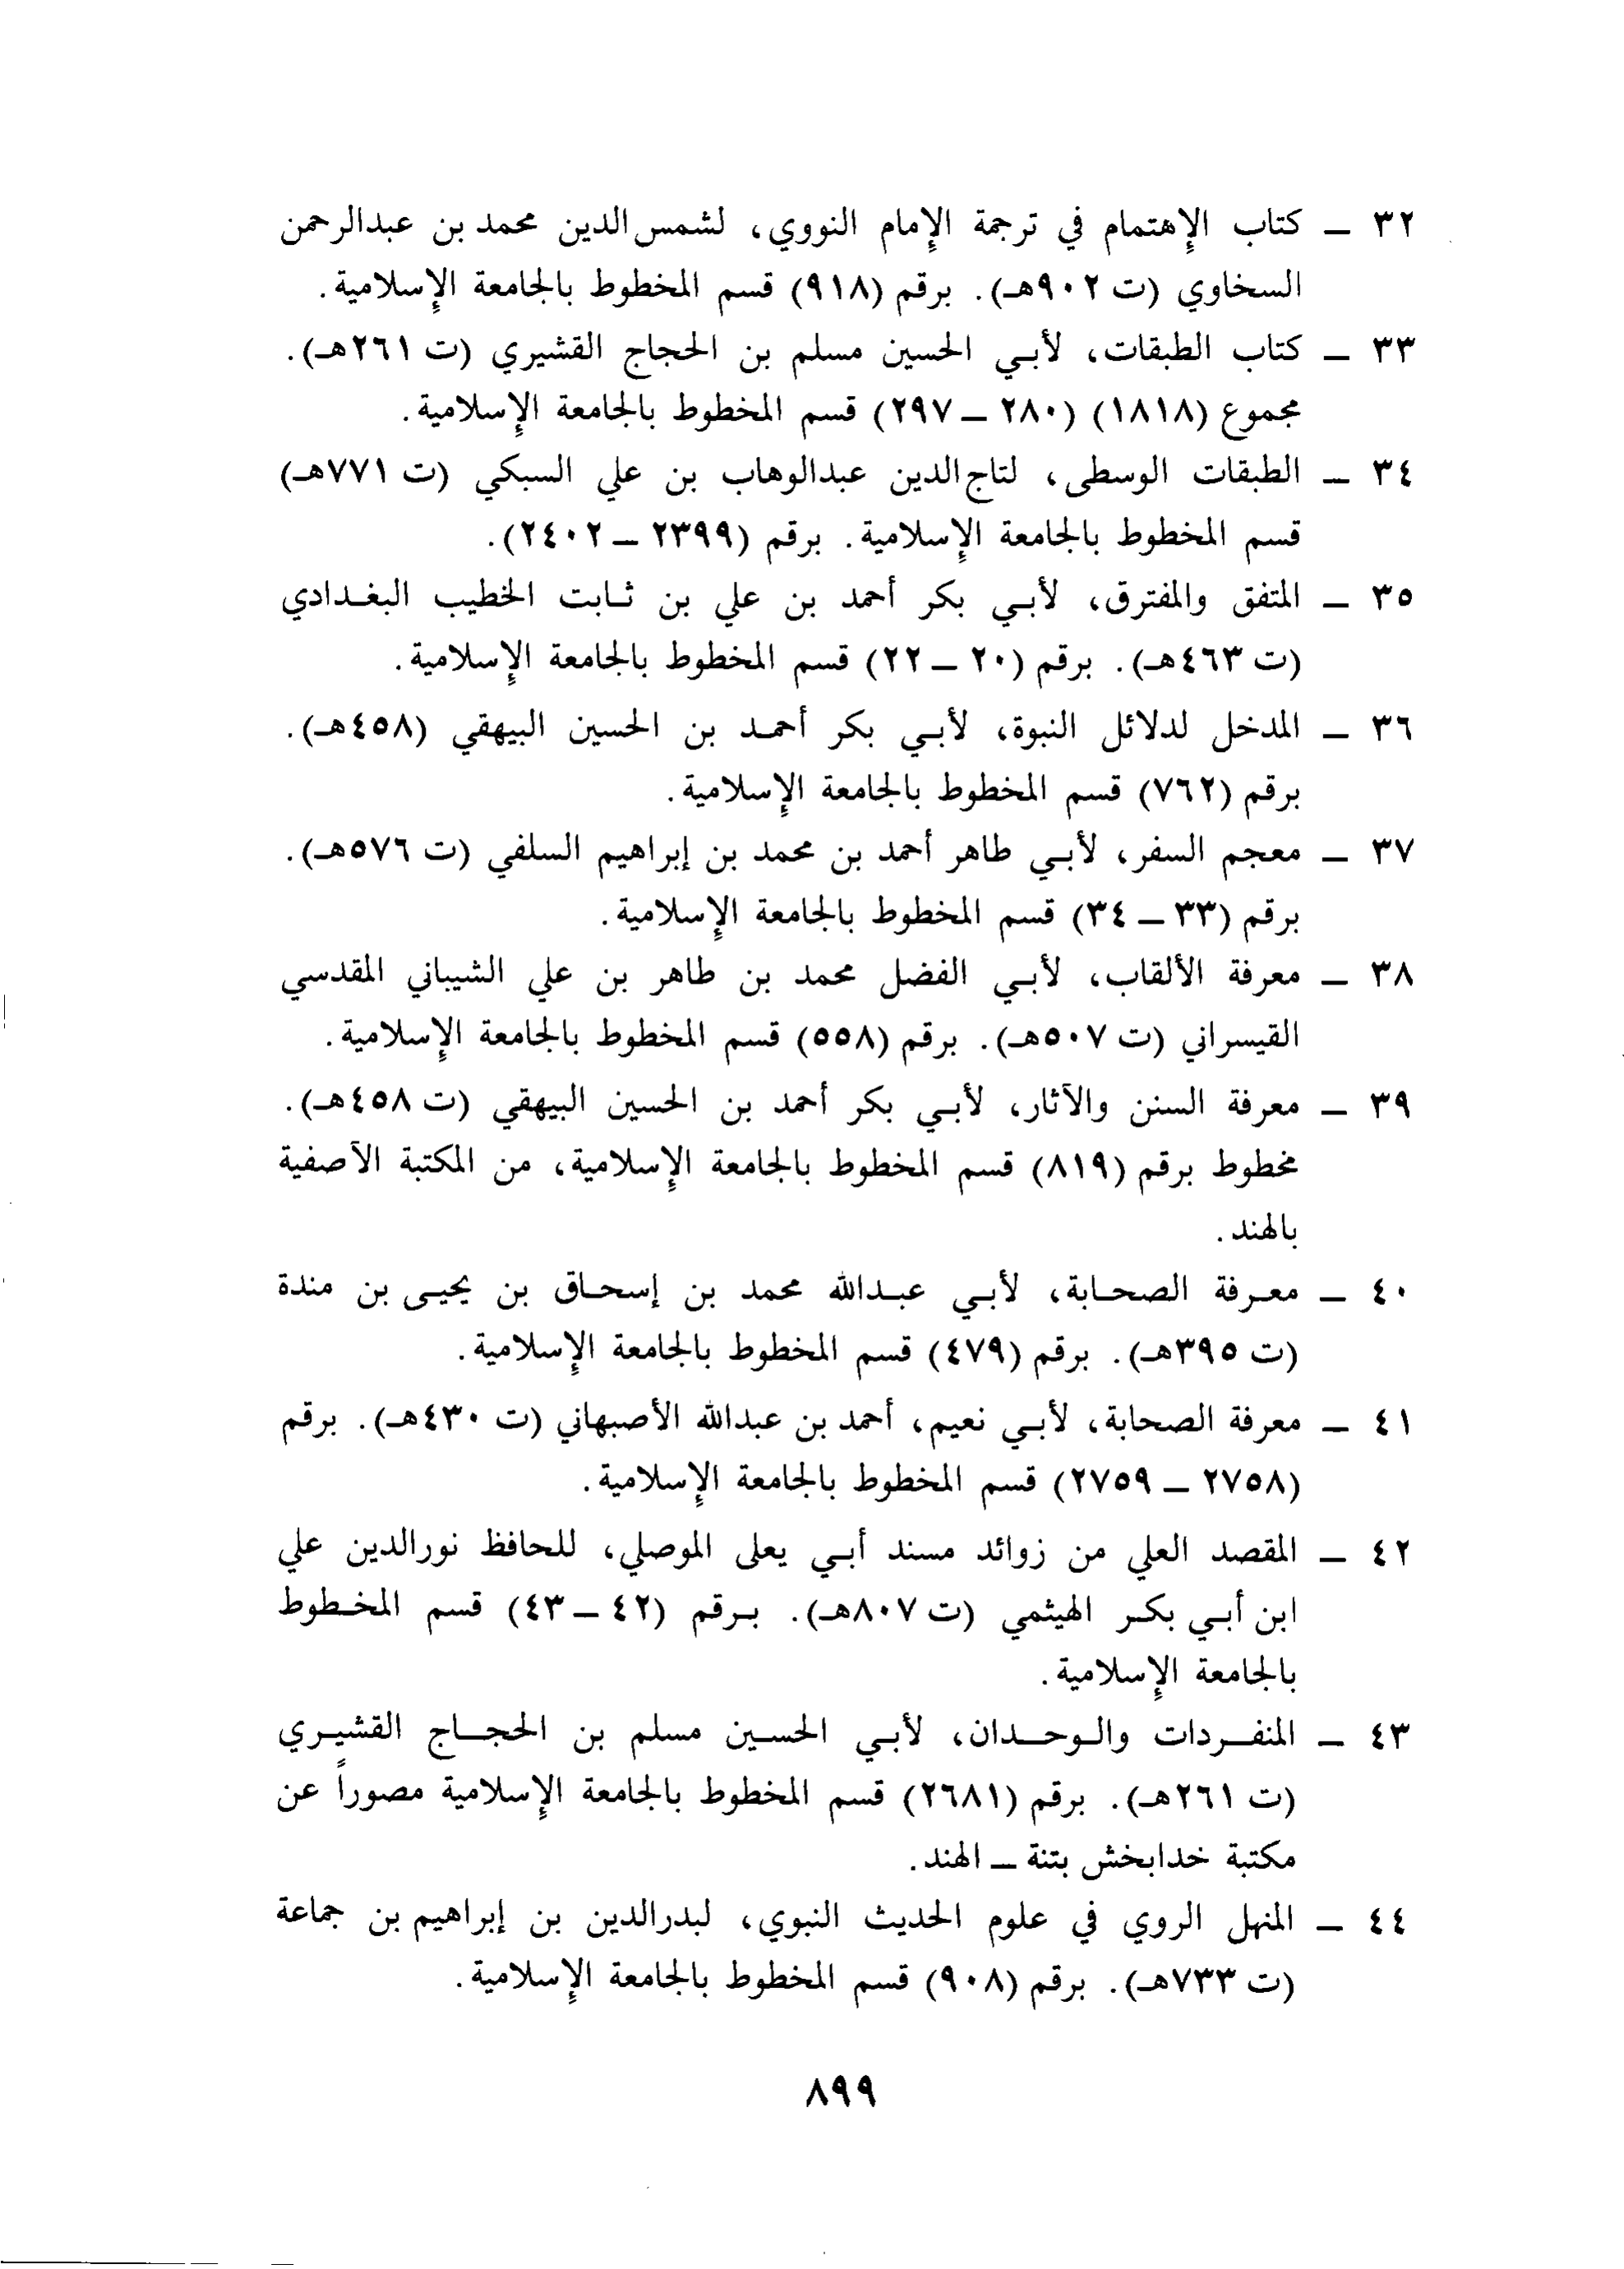 ٣٢ ــ كتاب الإهتمام في ترجمة الإمام النووي، لشمس‌الدين محمد بن عبدالرحمن
السخاوي (ت ٩٠٢هـ). برقم (٩١٨) قسم المخطوط بالجامعة الإسلامية.
٣٣ ــ كتاب الطبقات، لأبي الحسين مسلم بن الحجاج القشيري (ت ٢٦١هـ).
مجموع (١٨١٨) (٢٨٠ ــ ٢٩٧) قسم المخطوط بالجامعة الإسلامية.
٣٤ ــ الطبقات الوسطى، لتاج‌الدين عبدالوهاب بن علي السبكي (ت ٧٧١هـ)
قسم المخطوط بالجامعة الإسلامية. برقم (٢٣٩٩ ــ ٢٤٠٢).
٣٥ ــ المتفق والمفترق، لأبي بكر أحمد بن علي بن ثابت الخطيب البغدادي
(ت ٤٦٣هـ). برقم (٢٠ ــ ٢٢) قسم المخطوط بالجامعة الإسلامية.
٣٦ ــ المدخل لدلائل النبوة، لأبي بكر أحمد بن الحسين البيهقي (٤٥٨هـ).
برقم (٧٦٢) قسم المخطوط بالجامعة الإسلامية.
٣٧ ــ معجم السفر، لأبي طاهر أحمد بن محمد بن إبراهيم السلفي (ت ٥٧٦هـ).
برقم (٣٣ ــ ٣٤) قسم المخطوط بالجامعة الإسلامية.
٣٨ ــ معرفة الألقاب، لأبي الفضل محمد بن طاهر بن علي الشيباني المقدسي
القيسراني (ت ٥٠٧هـ). برقم (٥٥٨) قسم المخطوط بالجامعة الإسلامية.
٣٩ ــ معرفة السنن والآثار، لأبي بكر أحمد بن الحسين البيهقي (ت ٤٥٨هـ).
مخطوط برقم (٨١٩) قسم المخطوط بالجامعة الإسلامية، من المكتبة الآصفية
بالهند.
٤٠ ــ معرفة الصحابة، لأبي عبدالله محمد بن إسحاق بن يحيى بن مندة
(ت ٣٩٥هـ). برقم (٤٧٩) قسم المخطوط بالجامعة الإسلامية.
٤١ ــ معرفة الصحابة، لأبي نعيم، أحمد بن عبدالله الأصبهاني (ت ٤٣٠هـ). برقم
(٢٧٥٨ ــ ٢٧٥٩) قسم المخطوط بالجامعة الإسلامية.
٤٢ ــ المقصد العلي من زوائد مسند أبي يعلى الموصلي، للحافظ نورالدين علي
ابن أبي بكر الهيثمي (ت ٨٠٧هـ). برقم (٤٢ ــ ٤٣) قسم المخطوط
بالجامعة الإسلامية.
٤٣ ــ المنفردات والوحدان، لأبي الحسين مسلم بن الحجاج القشيري
(ت ٢٦١هـ). برقم (٢٦٨١) قسم المخطوط بالجامعة الإسلامية مصوراً عن
مكتبة خدابخش بتنة ــ الهند.
٤٤ ــ المنهل الروي في علوم الحديث النبوي، لبدرالدين بن إبراهيم بن جماعة
(ت ٧٣٣هـ). برقم (٩٠٨) قسم المخطوط بالجامعة الإسلامية.
٨٩٩